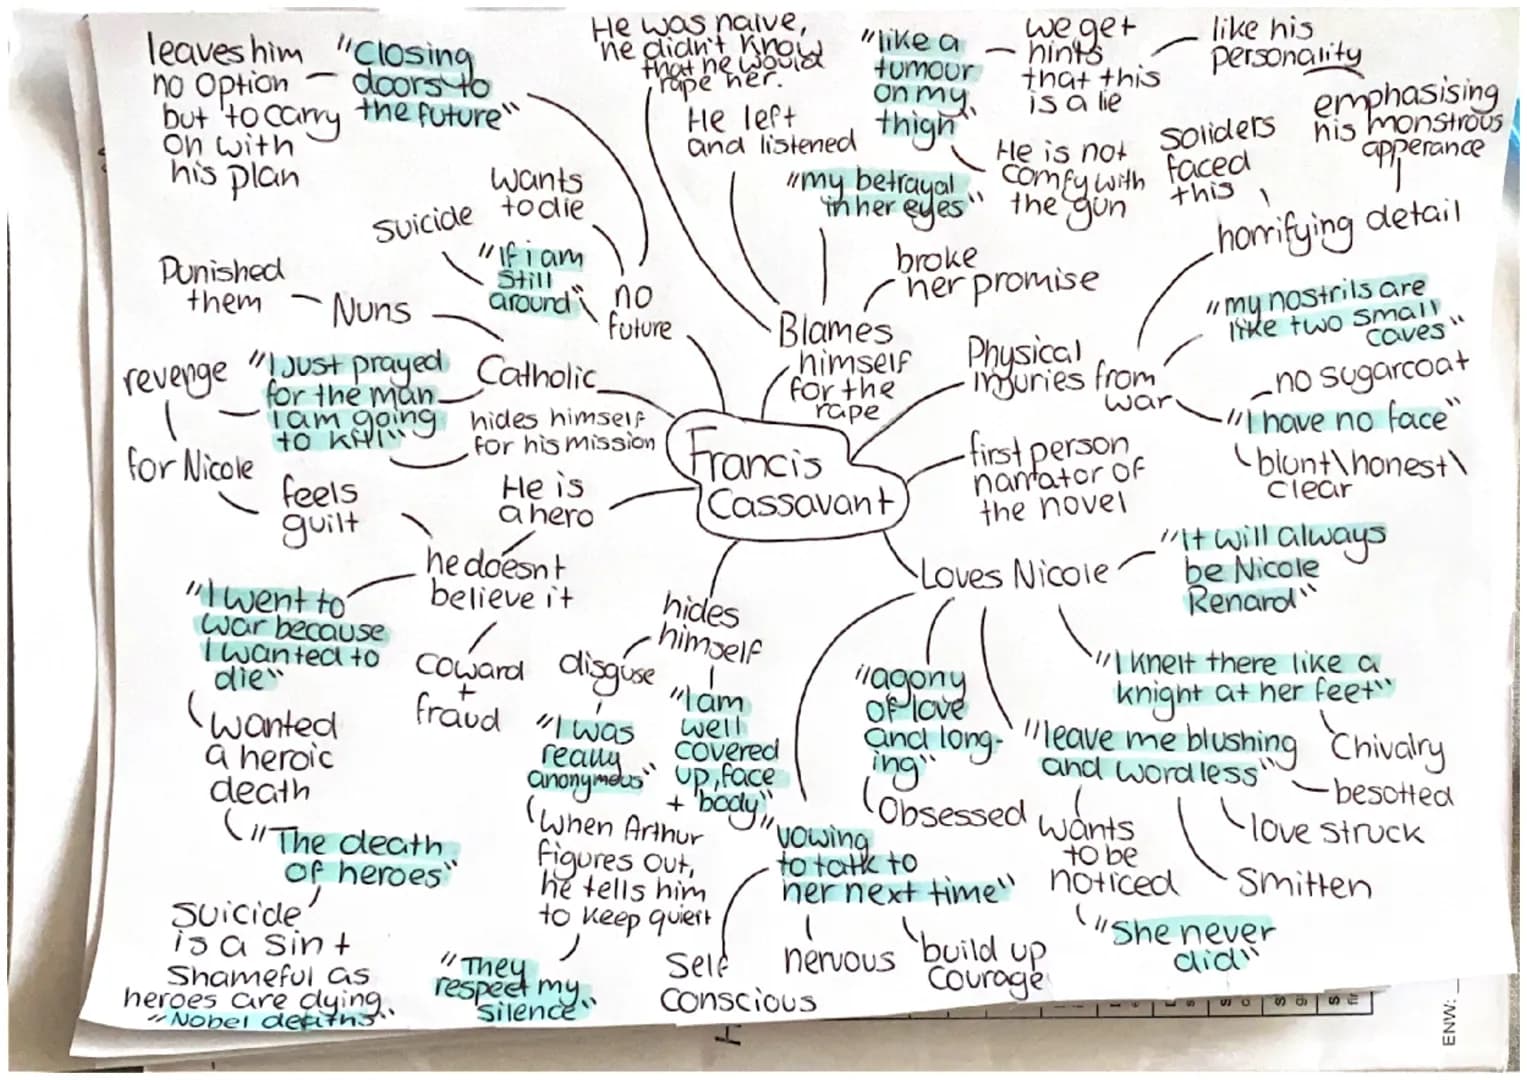 leaves him
no option
but to carry
on with
his plan
"Closing
doors to
the future"
He was naive,
he didn't know
that he would
rape her.
He left
and listened
"like a
tumour
on my
thigh"
we get
hints
that this
is a lie
like his
personality
emphasising
his monstrous
apperance
He is not
comfy with
the gun
soliders
faced
this
horrifying detail
"my betrayal
in her eyes"
wants
to die
suicide
"If i am
still
around"
no
future
broke
her promise
Blames
himself
for the
rape
Punished
them
Nuns
Catholic
revenge
for Nicole
"I Just prayed
for the man
I am going
to kill"
hides himself
for his mission
Physical
injuries from
war
"my nostrils are
like two small
caves"
no sugarcoat
"I have no face"
blunt\honest\
clear
Francis
Cassavant
first person
narrator of
the novel
feels
guilt
He is
a hero
he doesnt
believe it
"I went to
war because
I wanted to
die"
coward
+
fraud
wanted
a heroic
death
"The death
of heroes"
suicide
is a sin +
shameful as
heroes are dying
"Nobel deaths"
hides
himself
disguse
"I was
really
anonymous"
"I am
well
covered
up, face
+ body"
when Arthur
figures out,
he tells him
to keep quiert
"They
respect my
silence"
Loves Nicole
"It will always
be Nicole
Renard"
"I knelt there like a
knight at her feet"
Chivalry
"agony
of love
and long-
ing"
Obsessed
"leave me blushing
and wordless"
besotted
love struck
smitten
wants
to be
noticed
"She never
did"
"vowing
to talk to
her next time"
self
conscious
nervous
build up
courage
ENW: